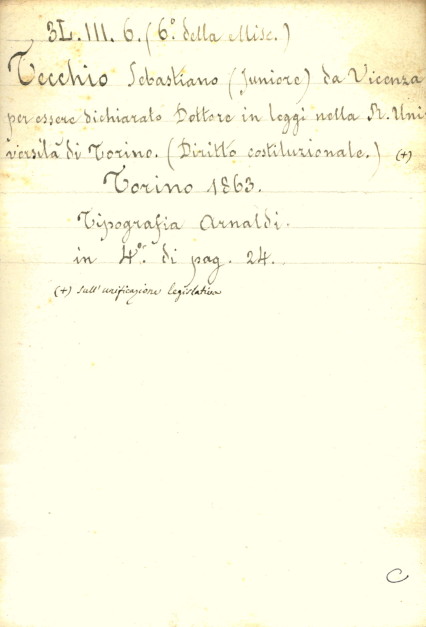 3L. III. 6. (6.° della Misc.)
Tecchio Sebastiano (Juniore) da Vicenza
per essere dichiarato Dottore in leggi nella R. Uni-
versità di Torino. (Diritto costituzionale.) (+)
Torino 1863.
Tipografia Arnaldi.
in 4.° di pag. 24.
(+) Sull'unificazione legislativa
C